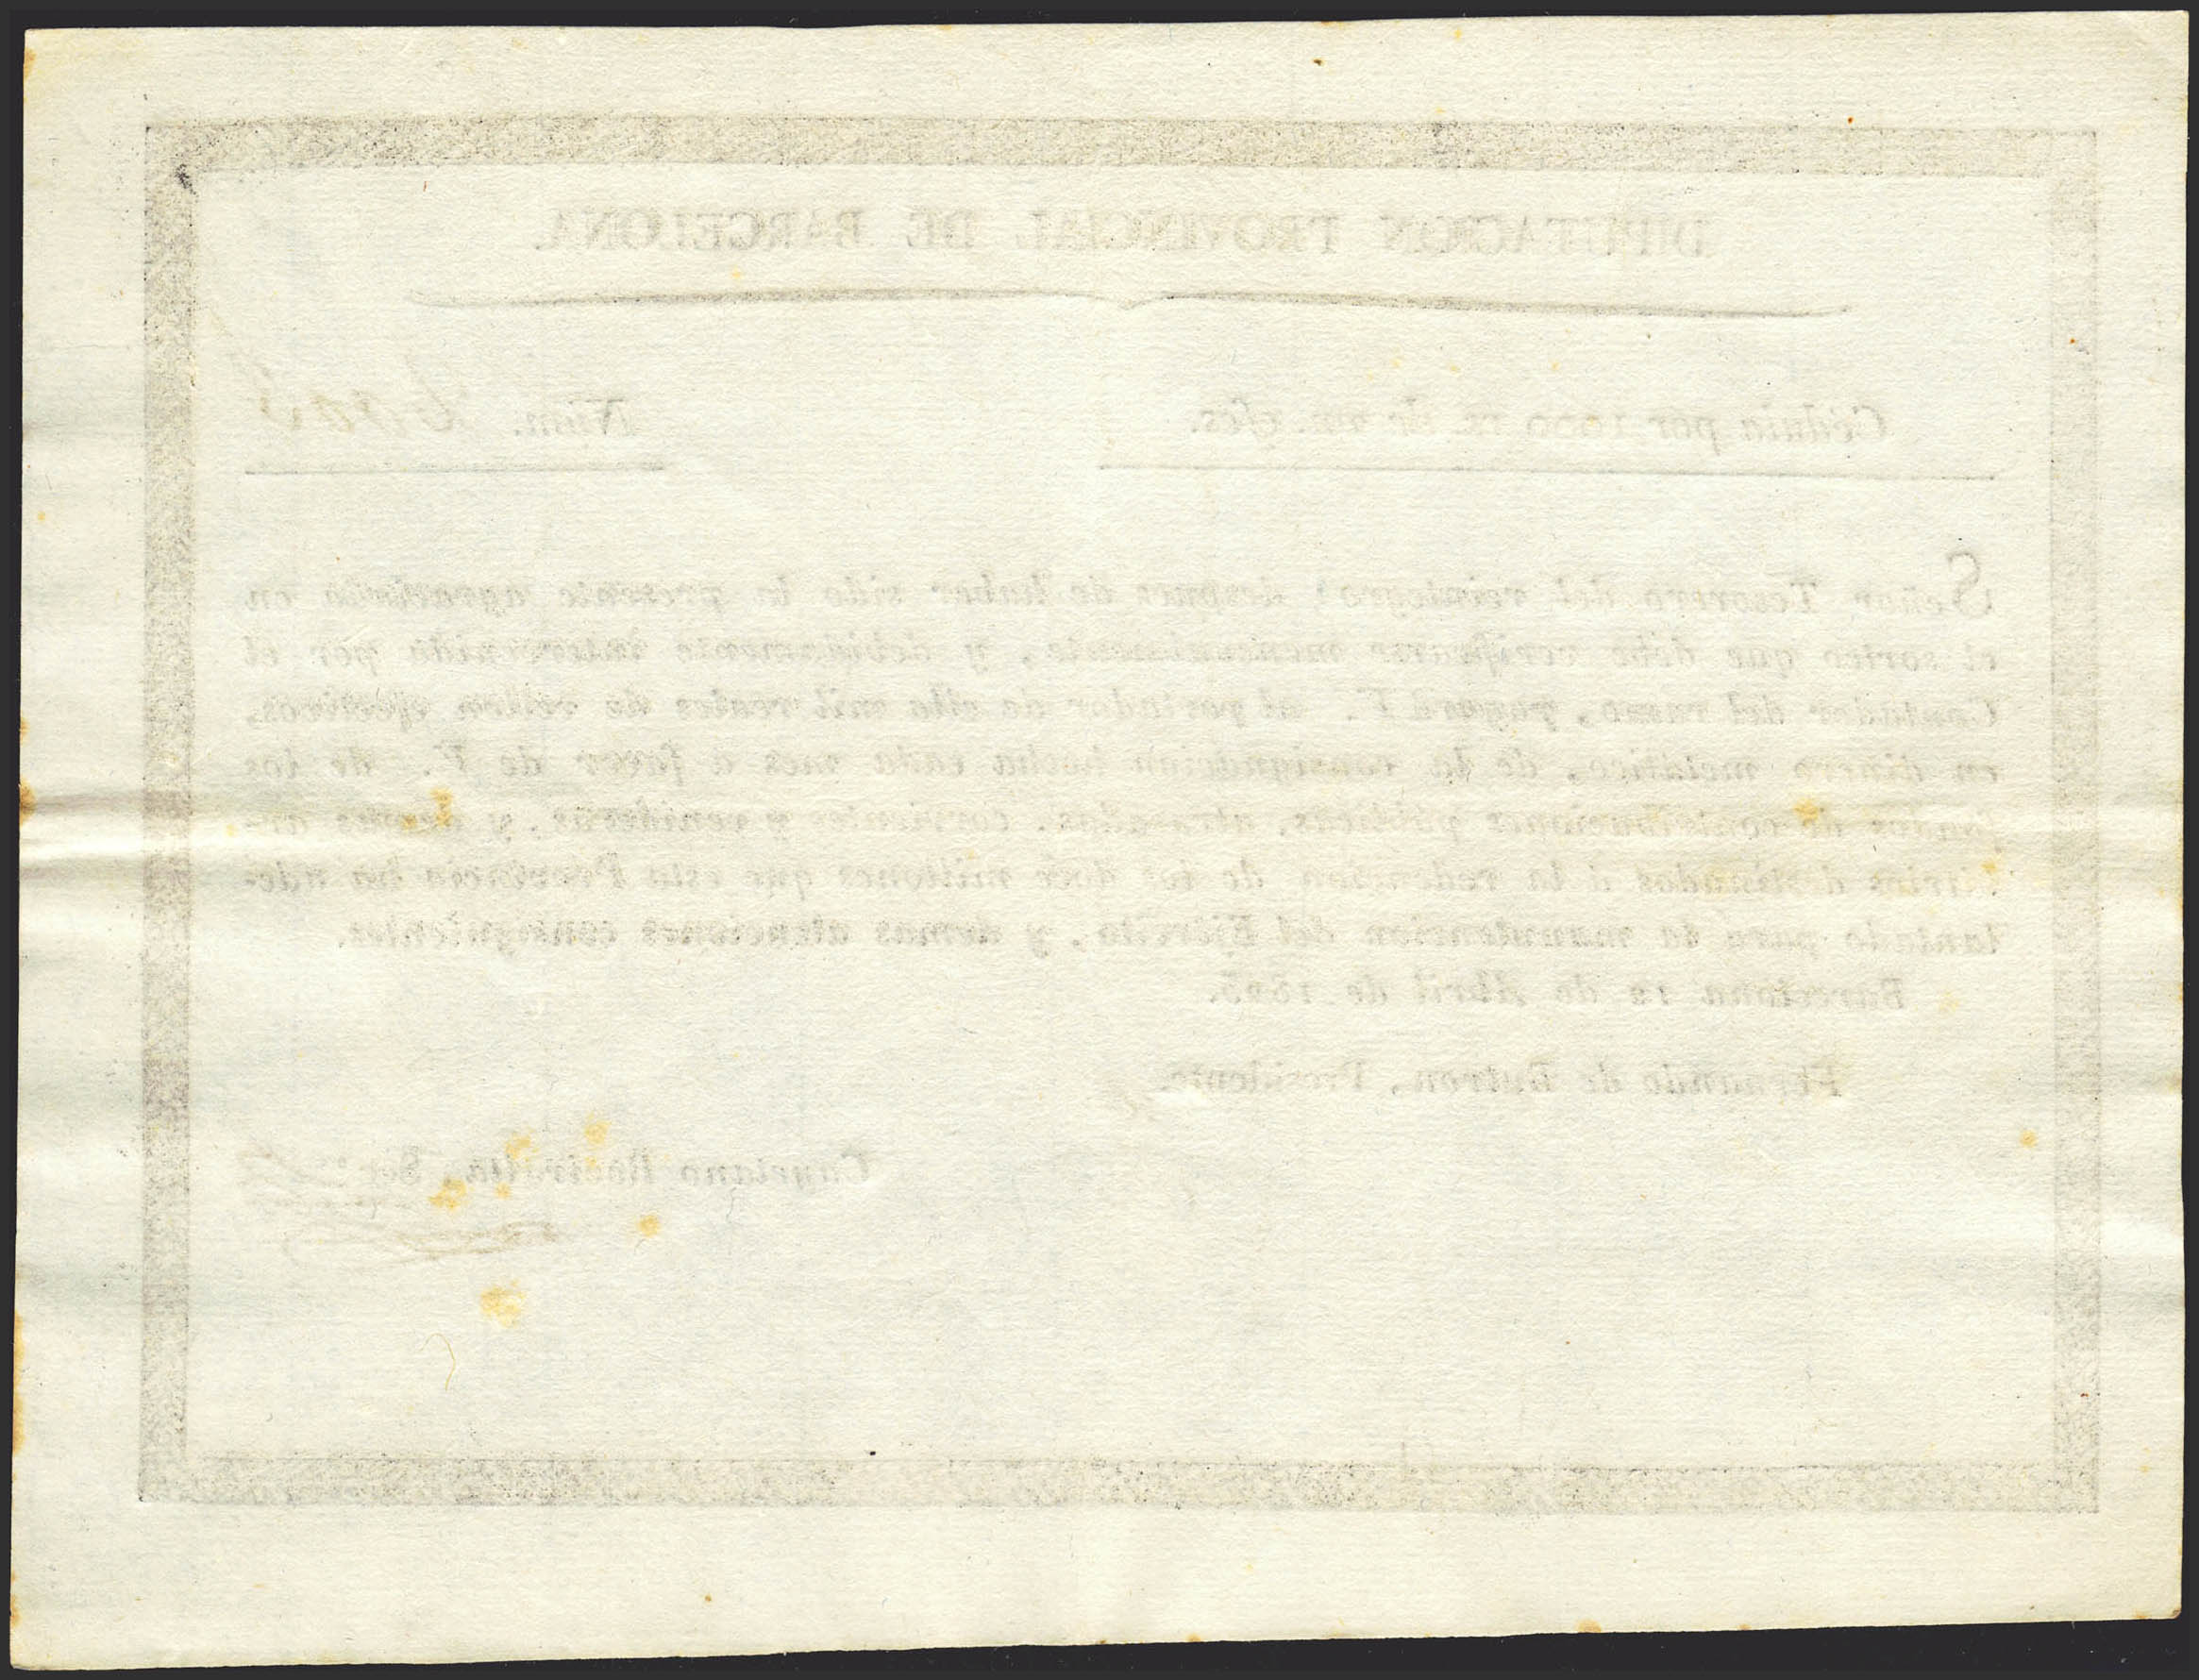 DIPUTACION PROVINCIAL DE BARCELONA.
Cédula por 1000 rs. de vn. efes.
Núm.
Señor Tesorero del reintegro: despues de haber sido la presente agraciada en
el sorteo que debe verificarse mensualmente, y debidamente intervenida por el
Contador del ramo, pagará V. al portador de ella mil reales de vellon efectivos,
en dinero metálico, de la consignacion hecha cada mes á favor de V. de los
fondos de contribuciones públicas, atrasadas, corrientes y venideras, y demas ar-
bitrios destinados á la redencion de los doce millones que esta Provincia ha ade-
lantado para la manutencion del Ejército, y demas atenciones consiguientes.
Barcelona 12 de Abril de 1823.
Fernando de Butron, Presidente.
Cayetano Sec.